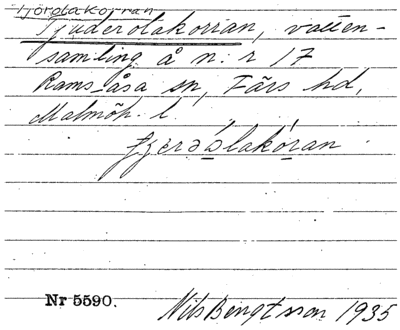 Tjörolakorran
Tjuderolakorran, vatten-
samling å n:r 17
Ramsåsa sn, Färs hd,
Malmöh. l.
Nr 5590.
Nils Bengtsson 1935